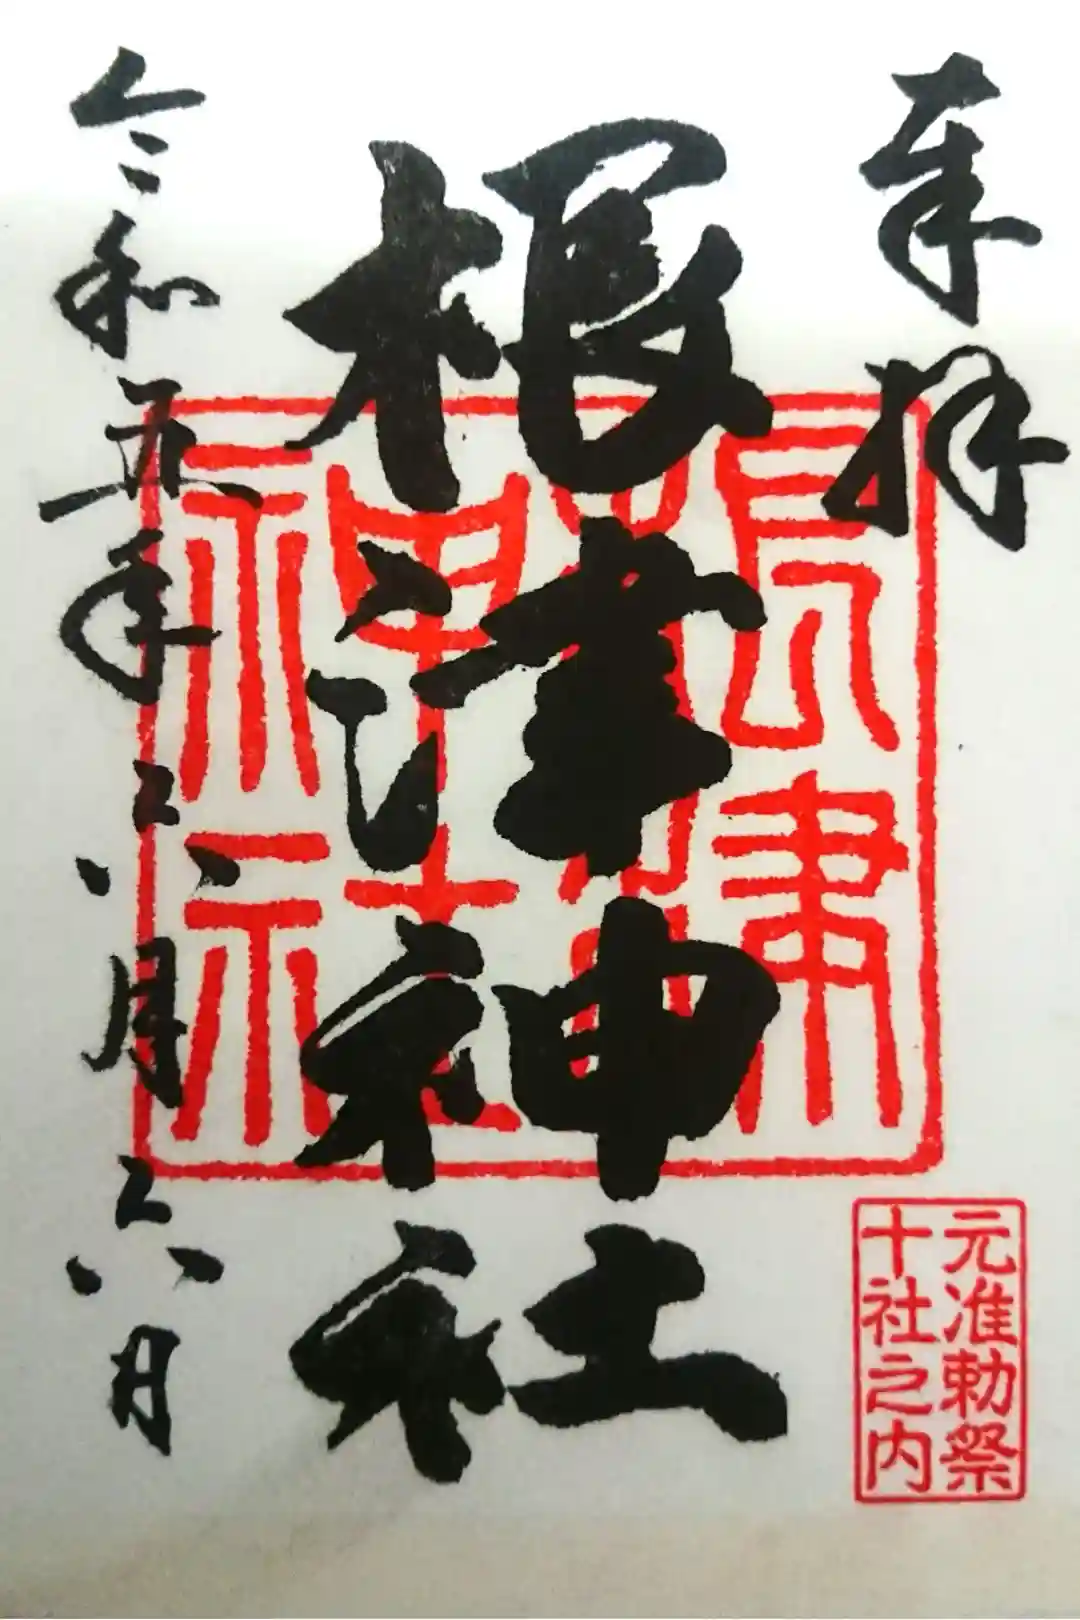 奉拝
根津神社
令和五年六月六日
根津神社
元准勅祭
十社之内